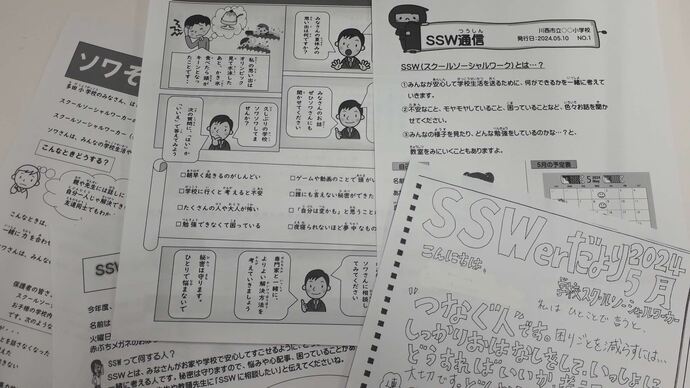 ソワそ
多田小学校のみなさん、は
スクールソーシャルワーカー
スクールソーシャルワーカー（
ソワさんは、みんなの学校生活や
こんなときどうする？
親や先生には話しに
自分一人じゃ解決でき
友達同士でもわか
こんなときは、
一緒に力を合わ
ソワさんは、み
保護者の皆さ
スクールソーシ
お子様の学校内
す。次のような
今年度、
名前は
火曜日
赤ぶちメガネのお
SSWって何する人？
SSWとは、みなさんがお家や学校で安心してすごせるように、
一緒に考える人です。秘密は守りますので、悩みや心配事、困っていることがあ
「SSWに相談したい」と伝えてくださいね。
みなさんの夏休みの
思い出は何ですか？
私の思い出は
オリンピック
見て水泳した
あと、かき氷
食べたら頭が
キーンとなっ
たことです…
みなさんのお話
ぜひソワさんにも
聞かせてください
久しぶりの学校
ソワソワしてま
せんか？
次の質問に、「はい」か
「いいえ」で答えてみよう
□朝早く起きるのがしんどい
□学校に行くと考えると不安
□たくさんの人や大人が怖い
□勉強できなくて困っている
□ゲームや動画のことで頭がい
□誰にも言えない秘密ができた
□「自分は変かも」と思うこと
□夜寝られないほど夢中なもの
ソワさんに相談し
てみてください
専門家と一緒に、
よりよい解決方法を
考えていきましょう
秘密は守ります。
ひとりで悩まないで
SSW通信
川西市立○○小学校
発行日：2024.05.10 NO.1
SSW（スクールソーシャルワーク）とは…？
①みんなが安心して学校生活を送るために、何ができるかを一緒に考えて
いきます。
②不安なこと、モヤモヤしていること、困っていることなど、色々お話を聞
かせてください。
③みんなの様子を見たり、どんな勉強をしているのかな…？と、
教室をみにいくこともありますよ。
5月の予定表
SSWerだより 2024
5月
こんにちは。
学校スクールソーシャルワーカー
私は ひとことで言うと、
"つなぐ人"です。困りごとを減らすには…
しっかりおはなしをして、いっしょに
どうすればいいか
大切です。